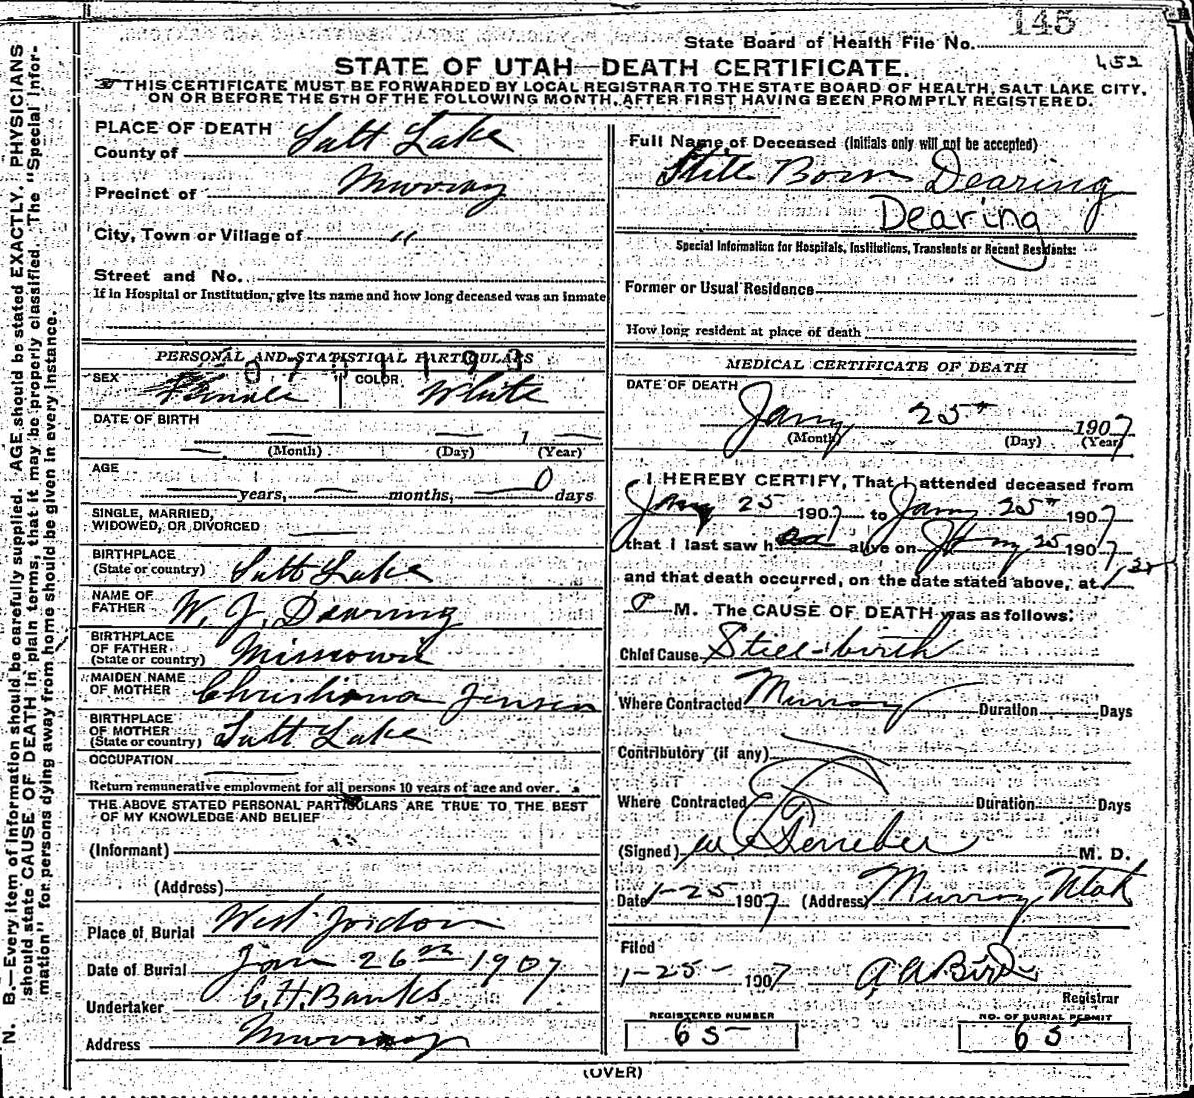 145
State Board of Health File No.
452
STATE OF UTAH—DEATH CERTIFICATE.
THIS CERTIFICATE MUST BE FORWARDED BY LOCAL REGISTRAR TO THE STATE BOARD OF HEALTH, SALT LAKE CITY,
ON OR BEFORE THE 5TH OF THE FOLLOWING MONTH, AFTER FIRST HAVING BEEN PROMPTLY REGISTERED.
N. B.—Every item of information should be carefully supplied. AGE should be stated EXACTLY. PHYSICIANS
should state CAUSE OF DEATH in plain terms, that it may be properly classified. The "Special Infor-
mation" for persons dying away from home should be given in every instance.
PLACE OF DEATH
County of Salt Lake
Precinct of Murray
City, Town or Village of "
Street and No.
If in Hospital or Institution, give its name and how long deceased was an inmate
PERSONAL AND STATISTICAL PARTICULARS
0701193
SEX Female COLOR White
DATE OF BIRTH — — 1 —
(Month) (Day) (Year)
AGE — years, — months, — 0 days
SINGLE, MARRIED,
WIDOWED, OR DIVORCED —
BIRTHPLACE
(State or country) Salt Lake
NAME OF
FATHER W. J. Dearing
BIRTHPLACE
OF FATHER
(State or country) Missouri
MAIDEN NAME
OF MOTHER Christiana Jensen
BIRTHPLACE
OF MOTHER
(State or country) Salt Lake
OCCUPATION —
Return remunerative employment for all persons 10 years of age and over.
THE ABOVE STATED PERSONAL PARTICULARS ARE TRUE TO THE BEST
OF MY KNOWLEDGE AND BELIEF
(Informant)
(Address)
Place of Burial West Jordon
Date of Burial Jan 26th 1907
Undertaker C. H. Banks
Address Murray
Full Name of Deceased (Initials only will not be accepted)
Still Born Dearing
Dearing
Special Information for Hospitals, Institutions, Transients or Recent Residents:
Former or Usual Residence
How long resident at place of death
MEDICAL CERTIFICATE OF DEATH
DATE OF DEATH
Jany 25th 1907
(Month) (Day) (Year)
I HEREBY CERTIFY, That I attended deceased from
Jany 25 1907 to Jany 25th 1907
that I last saw h alive on Jany 25 1907
and that death occurred, on the date stated above, at 1 30
P M. The CAUSE OF DEATH was as follows:
Chief Cause Still-birth
Where Contracted Murray Duration Days
Contributory (if any)
Where Contracted Duration Days
(Signed) M. D.
Date 1-25 1907 (Address) Murray Utah
Filed
1-25- 1907 A A Bird
Registrar
REGISTERED NUMBER
65
NO. OF BURIAL PERMIT
65
(OVER)